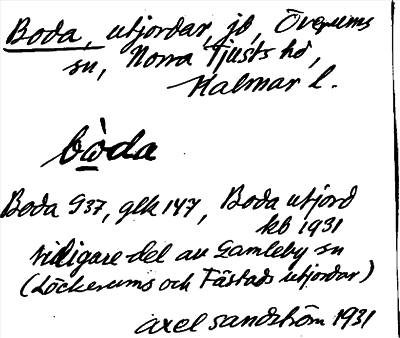 Boda, utjordar, jb, Överums
sn, Norra Tjusts hd,
Kalmar l.
bo̱̊̀da
Boda G37, glk 147, Boda utjord
kb 1931
tidigare del av Gamleby sn
(Löckerums och Fästads utjordar)
Axel Sandström 1931